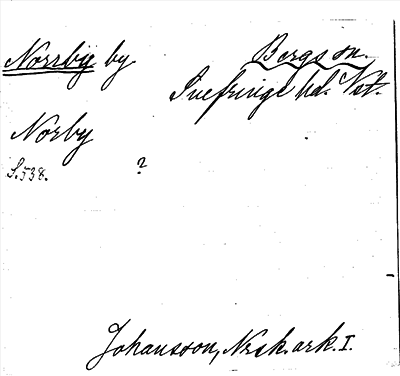 Norrby by Bergs sn.
Svefringe hd. Vst.
Norby
S. 538. ?
Johansson, Nrsk. ark. I.